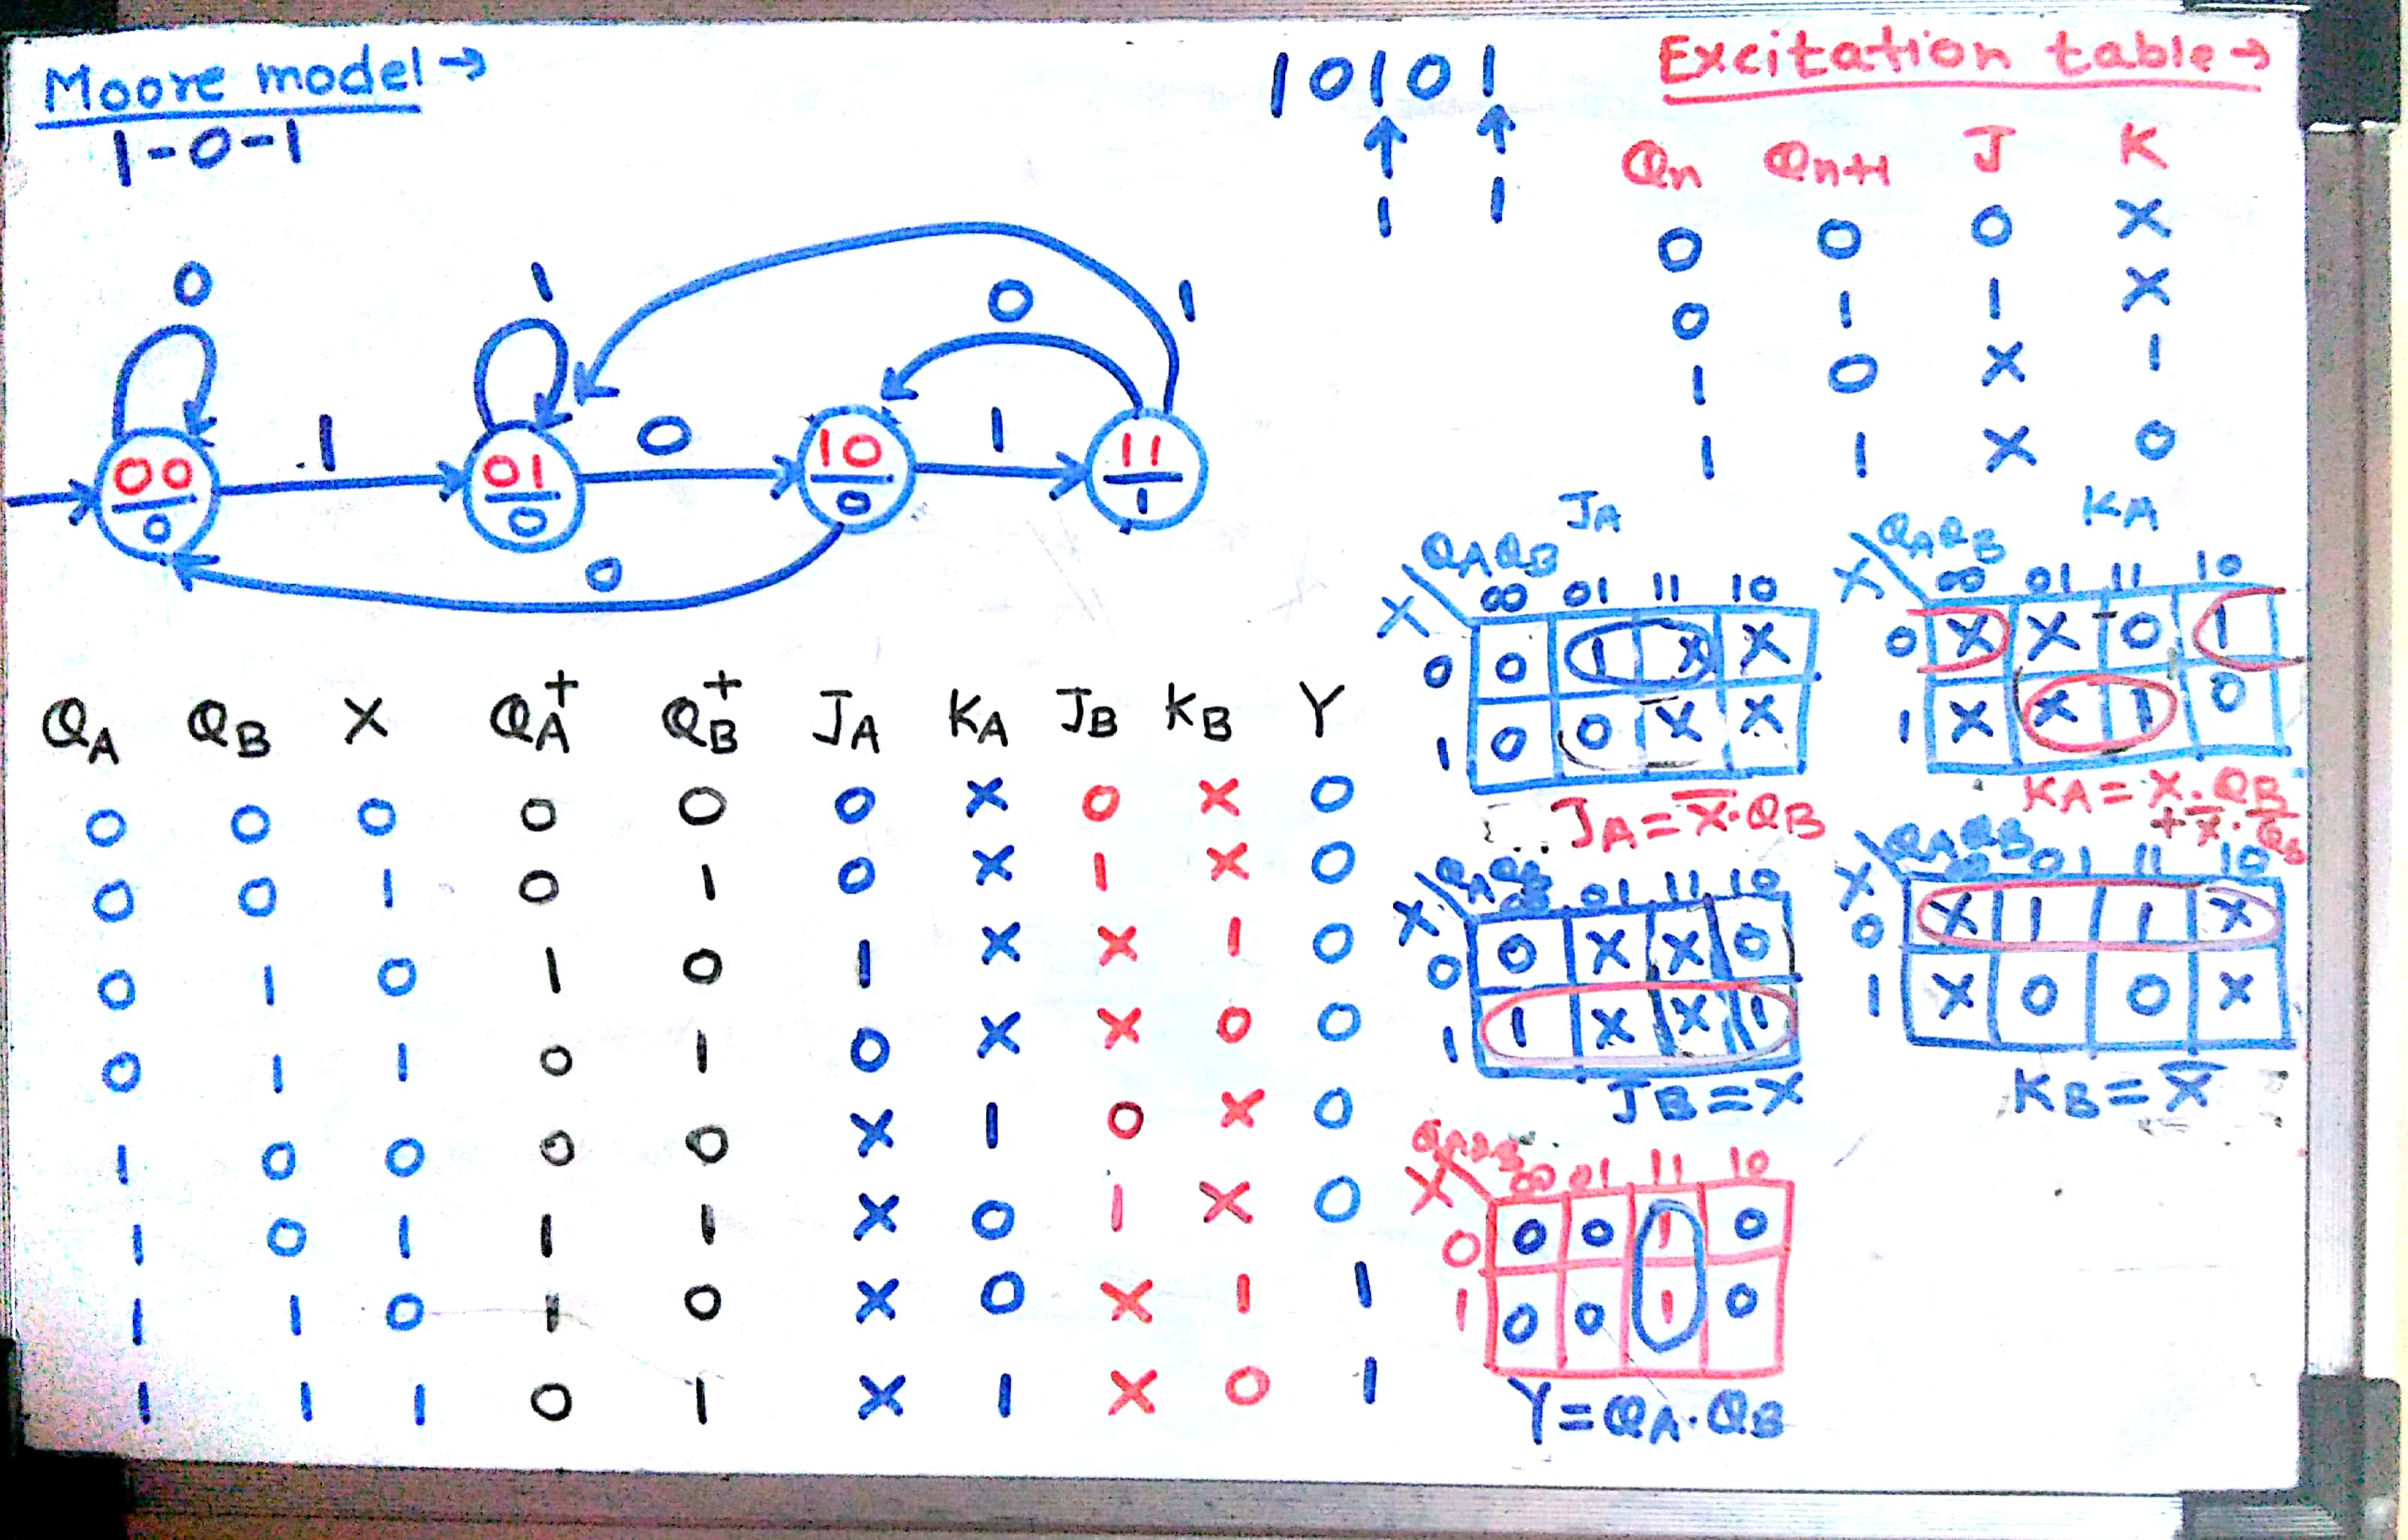 Moore model→
1-0-1
10101
↑ ↑
1 1
0 1 0 1
1 0 1
00 01 10 11
0 0 0 1
0
Excitation table→
Qn Qn+1 J K
0 0 0 X
0 1 1 X
1 0 X 1
1 1 X 0
QA QB X QA+ QB+ JA KA JB KB Y
0 0 0 0 0 0 X 0 X 0
0 0 1 0 1 0 X 1 X 0
0 1 0 1 0 1 X X 1 0
0 1 1 0 1 0 X X 0 0
1 0 0 0 0 X 1 0 X 0
1 0 1 1 1 X 0 1 X 0
1 1 0 1 0 X 0 X 1 1
1 1 1 0 1 X 1 X 0 1
JA
QAQB
X 00 01 11 10
0 0 1 X X
1 0 0 X X
JA = X̅·QB
KA
QAQB
X 00 01 11 10
0 X X 0 1
1 X X 1 0
KA = X·QB
+X̅·Q̅B
QAQB
X 00 01 11 10
0 0 X X 0
1 1 X X 1
JB = X
QAQB
X 00 01 11 10
0 X 1 1 X
1 X 0 0 X
KB = X̅
QAQB
X 00 01 11 10
0 0 0 1 0
1 0 0 1 0
Y = QA·QB